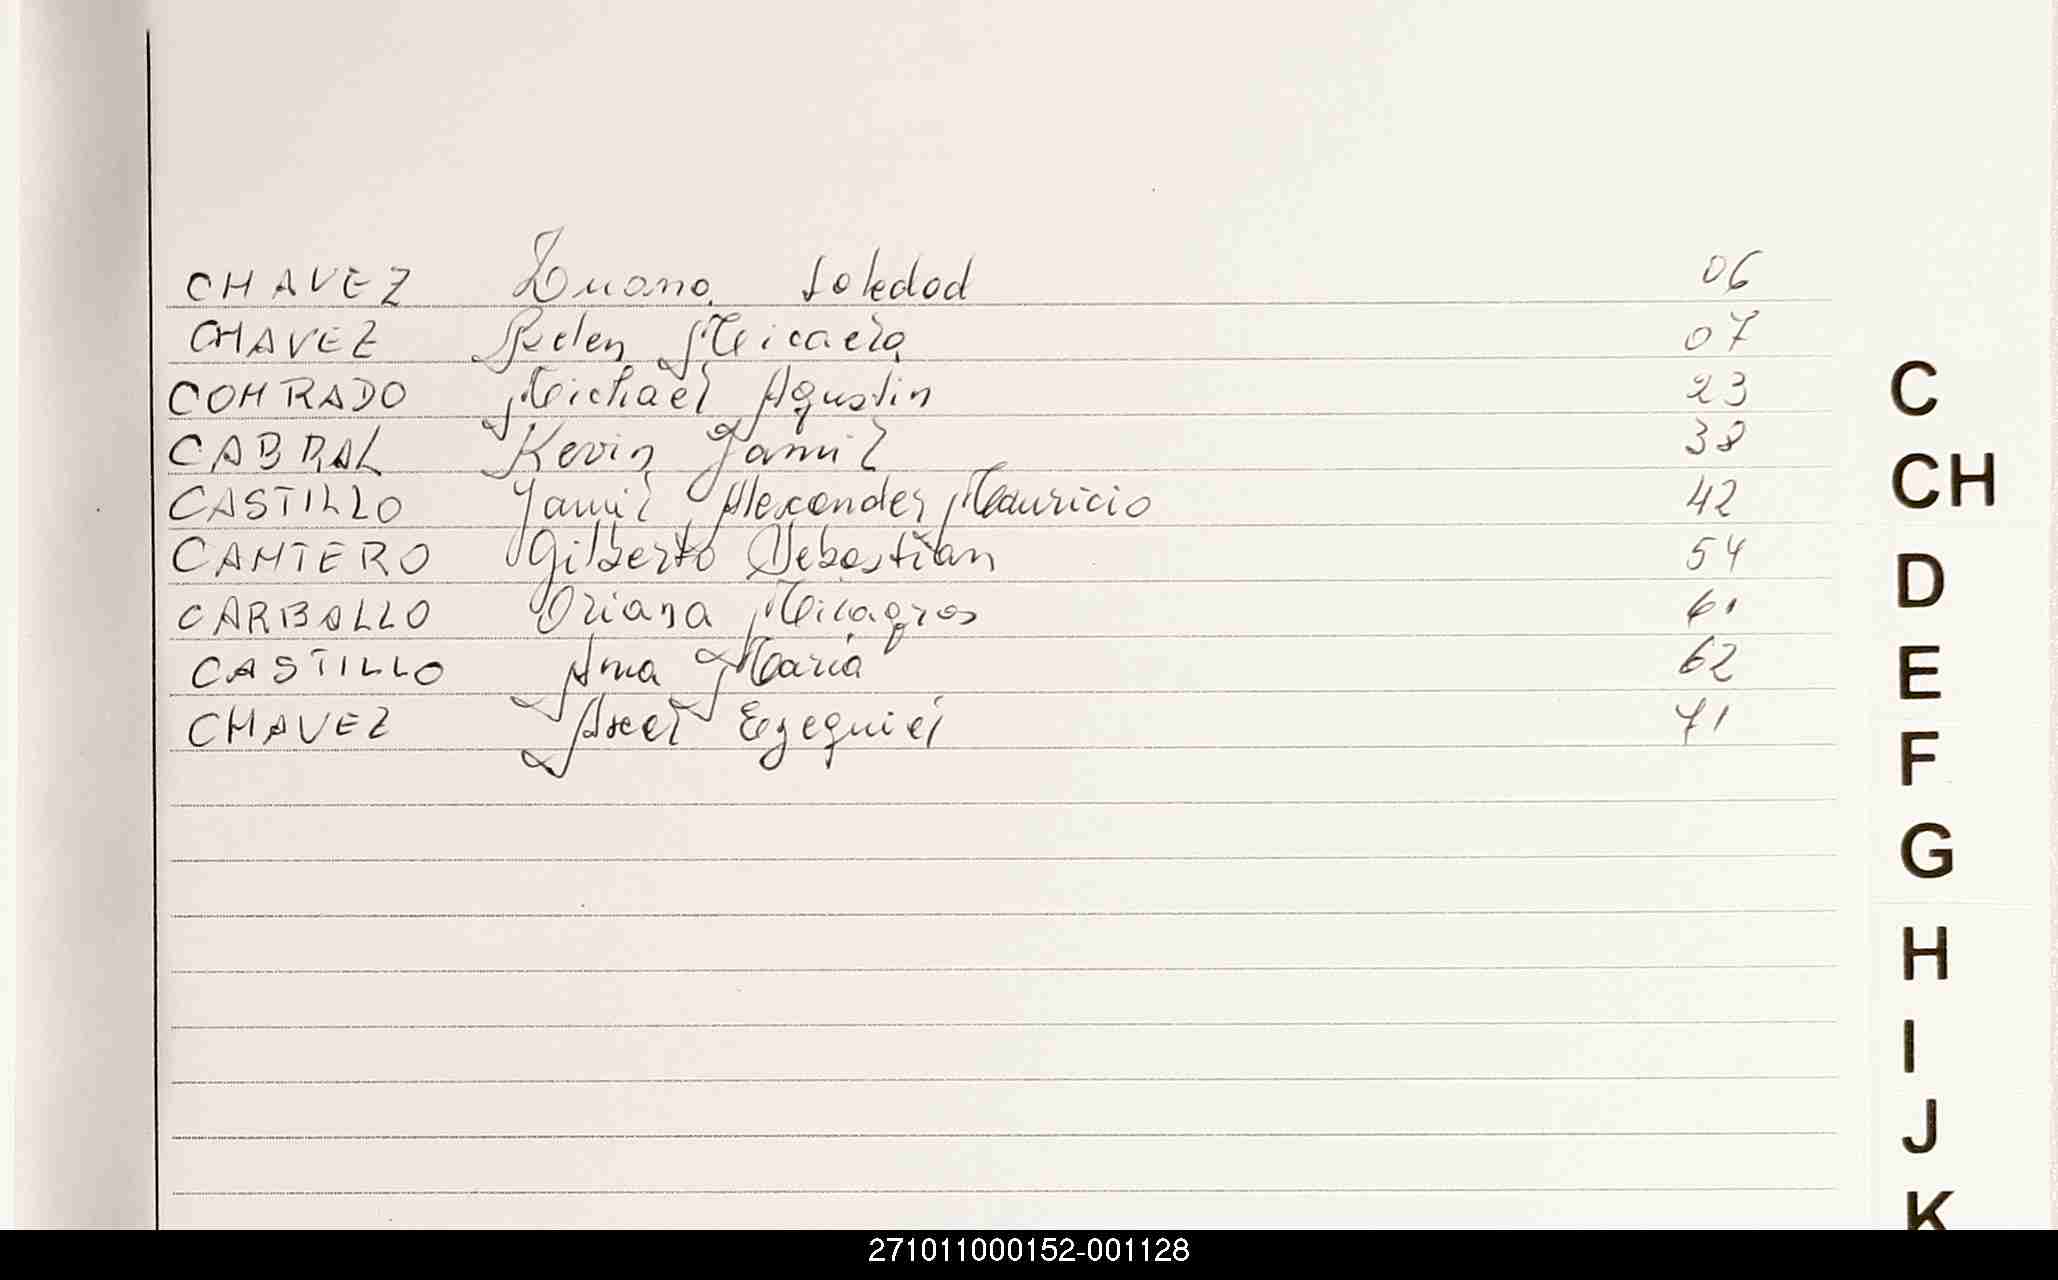 CHAVEZ Luana Soledad 06
CHAVEZ Belen Micaela 07
CONRADO Michael Agustin 23
CABRAL Kevin Jamil 38
CASTILLO Jamil Alexander Mauricio 42
CANTERO Gilberto Sebastian 54
CARBALLO Oriana Milagros 61
CASTILLO Ana Maria 62
CHAVEZ Axel Ezequiel 71
C
CH
D
E
F
G
H
I
J
K
271011000152-001128